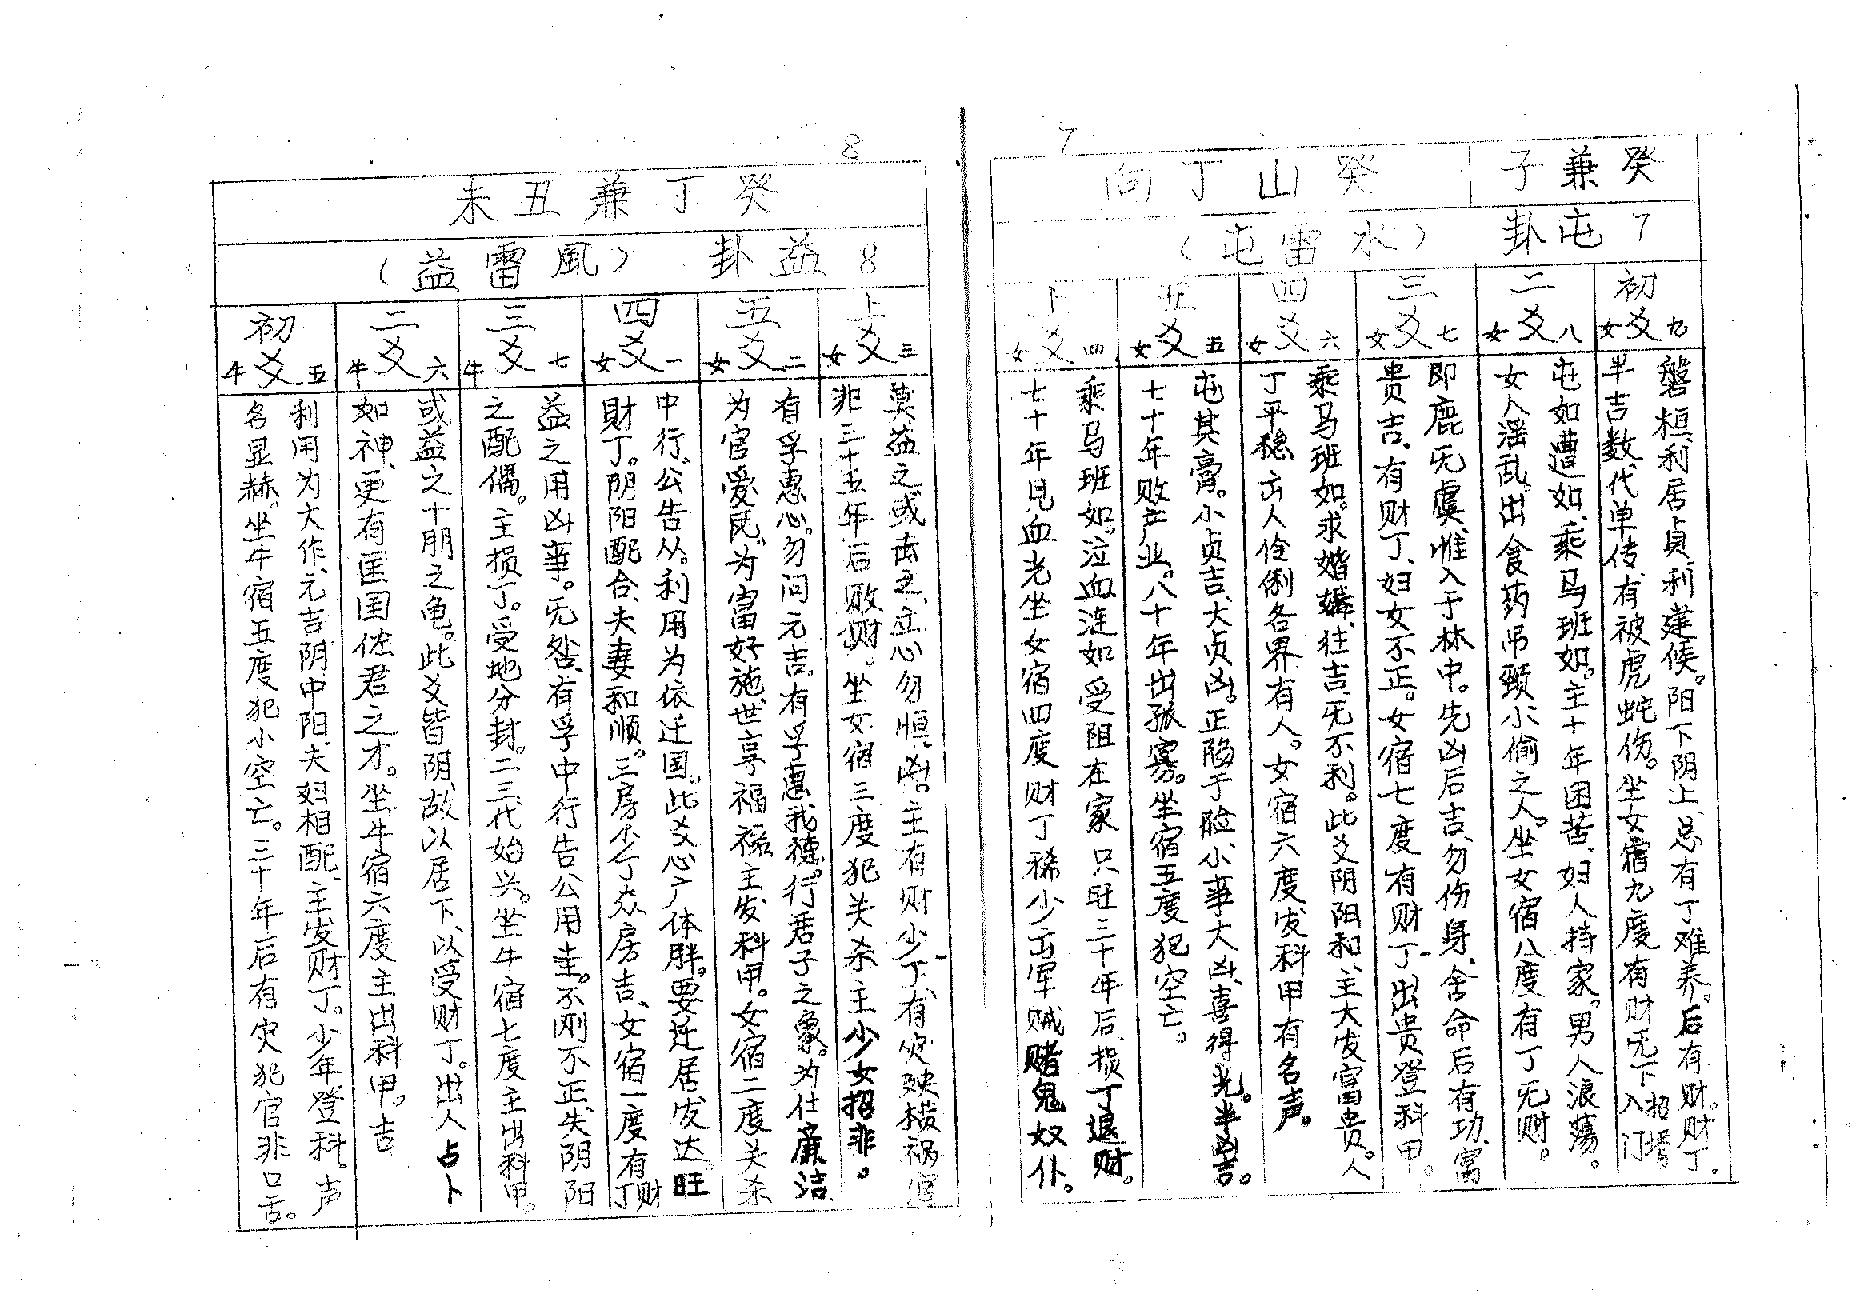 7
癸兼子 癸山丁向
7屯卦 （水雷屯）
初爻 女九
磐桓，利居贞，利建候。阳下阴上，总有丁难养。后有财。财丁
半吉数代单传，有被虎蛇伤。坐女宿九度有财无丁招婿入门
二爻 女八
屯如遭如，乘马班如。主十年困苦、妇人持家。男人浪荡。
女人淫乱。出食药吊颈、小偷之人。坐女宿八度有丁无财。
三爻 女七
即鹿旡虞，惟入于林中。先凶后吉、勿伤身、舍命后有功、富
贵吉、有财丁、妇女不正。女宿七度有财丁、出贵登科甲。
四爻 女六
乘马班如。求婚媾，往吉，旡不利。此爻阴阳和、主大发富贵。人
丁平稳、出人伶俐各界有人。女宿六度发科甲有名声。
五爻 女五
屯其膏。小贞吉、大贞凶。正陷于险、小事大凶、喜得光。半凶吉。
七十年败产业。八十年出孤寡。坐宿五度犯空亡。
上爻 女四
乘马班如。泣血涟如受阻在家只旺三十年后、损丁退财。
七十年见血光坐女宿四度财丁稀少出军贼赌鬼奴仆。
8
癸丁兼丑未
8益卦 （風雷益）
上爻 女三
莫益之或击之、立心勿恒、凶。主有财少丁、有灾殃横祸官
非三十五年后败财。坐女宿三度犯关杀主少女招非。
五爻 女二
有孚惠心。勿问元吉。有孚惠我德。行君子之象。为仕廉洁
为官爱民。为富好施、世享福禄主发科甲。女宿二度关杀
四爻 女一
中行，公告从。利用为依迁国。此爻心广体胖。要迁居发达旺
财丁。阴阳配合、夫妻和顺。三房不丁众房吉、女宿一度有财丁
三爻 牛七
益之用凶事。旡咎、有孚中行告公用圭。不刚不正、失阴阳
之配偶。主损丁。受地分封。二三代始兴。坐牛宿七度主出科甲。
二爻 牛六
或益之十朋之龟。此爻皆阴、故以居下、以受财丁。出人占卜
如神、更有匡国佐君之才。坐牛宿六度主出科甲。吉
初爻 牛五
利用为大作、元吉阴中阳、夫妇相配、主发财丁。少年登科、声
名显赫。坐牛宿五度犯小空亡。三十年后有灾犯官非口舌。